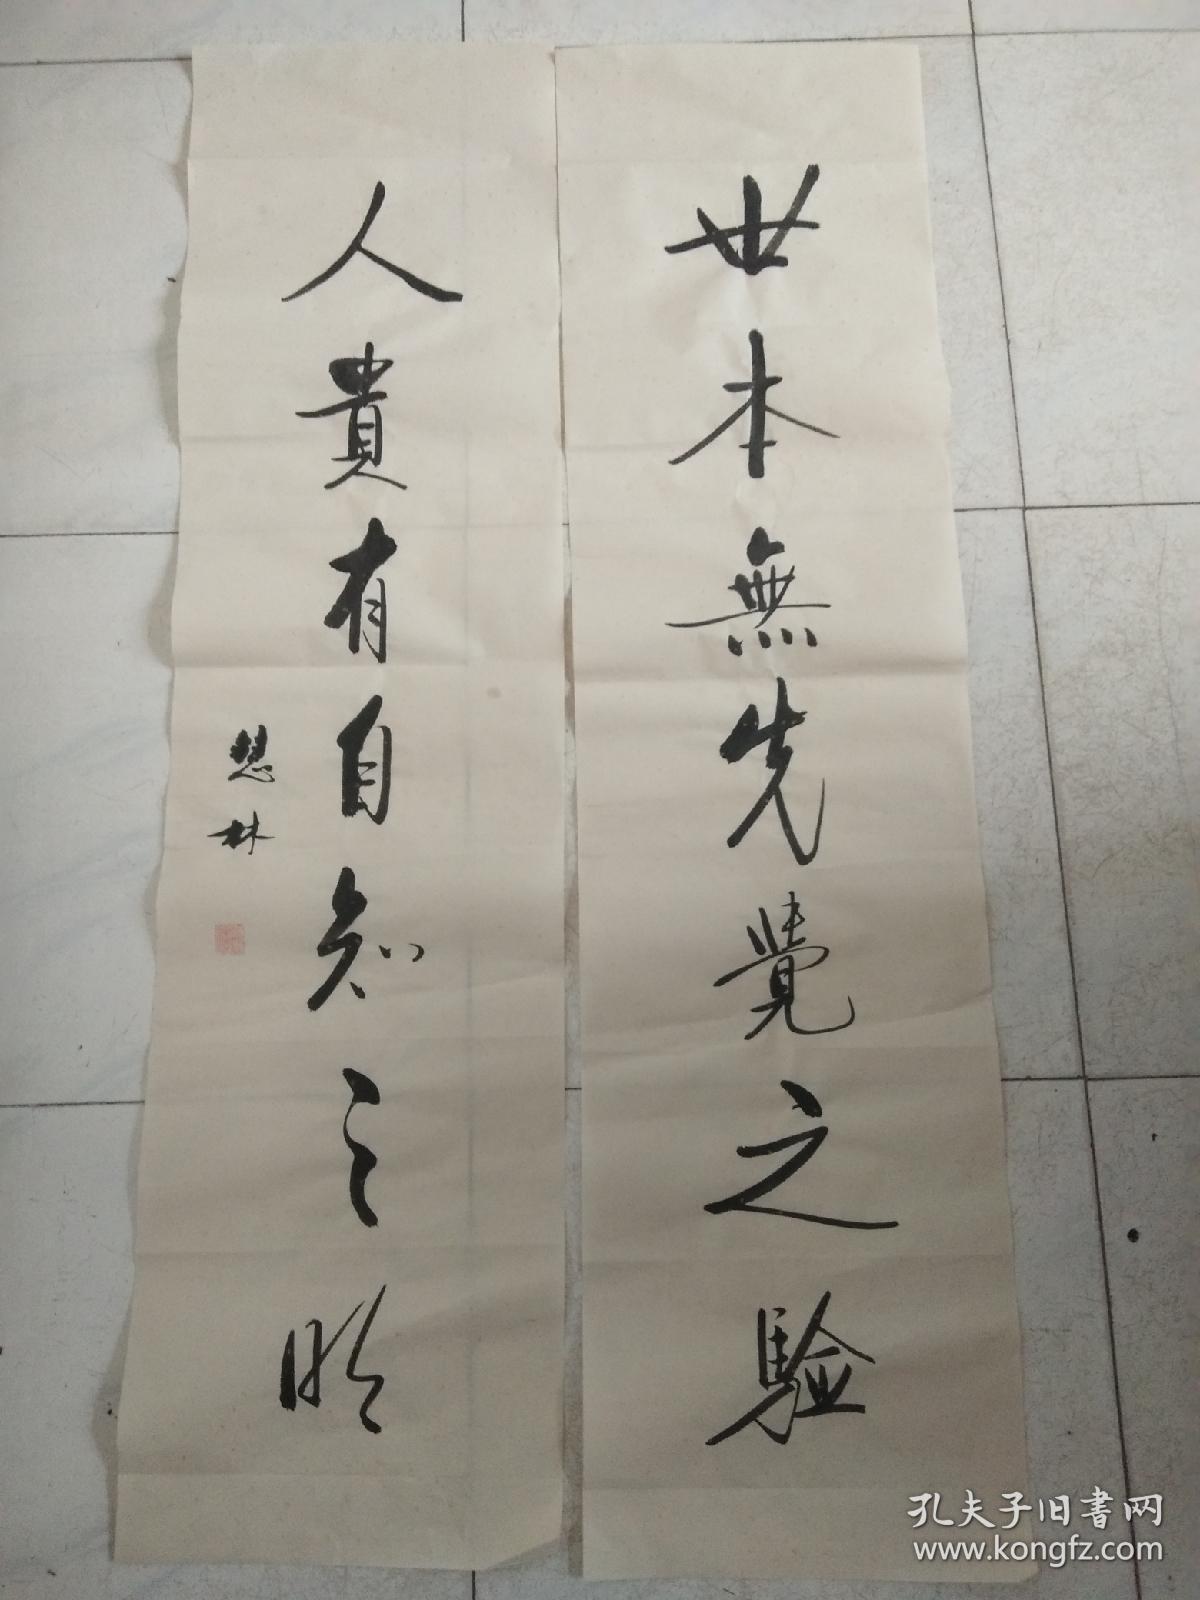 世本無先覺之驗
人貴有自知之明
慧林
孔夫子旧书网
www.kongfz.com